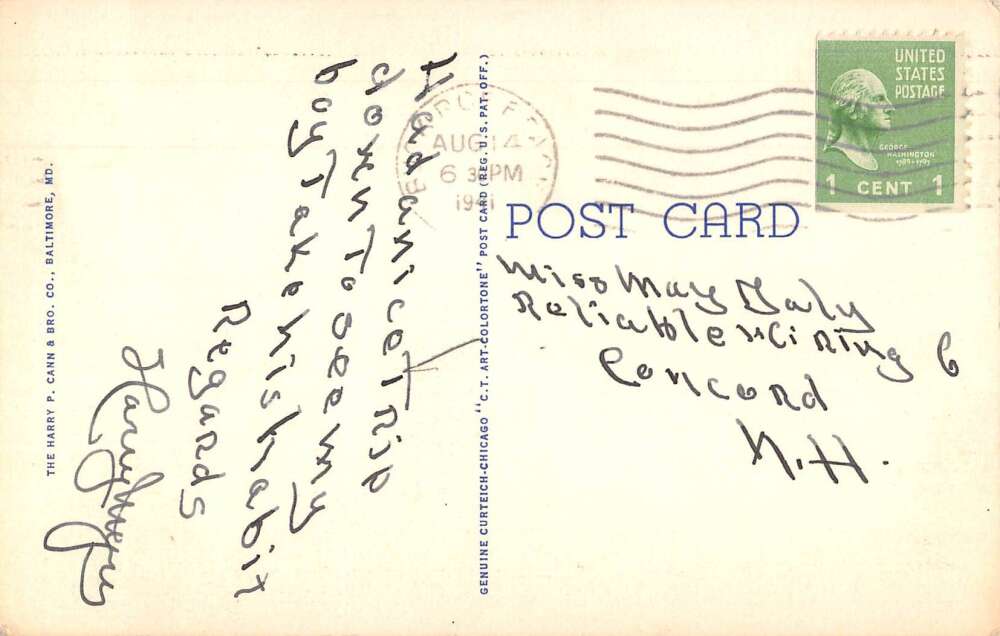 Had a nice Trip
down To see my
boy Take his habit
Regards
Harry
THE HARRY P. CANN & BRO. CO., BALTIMORE, MD.
GENUINE CURTEICH-CHICAGO "C.T. ART-COLORTONE" POST CARD (REG. U.S. PAT. OFF.)
AUG 14
6 30 PM
1941
UNITED
STATES
POSTAGE
GEORGE
WASHINGTON
1789-1797
1 CENT 1
POST CARD
Miss May Daly
Reliable Wiring Co
Concord
N.H.